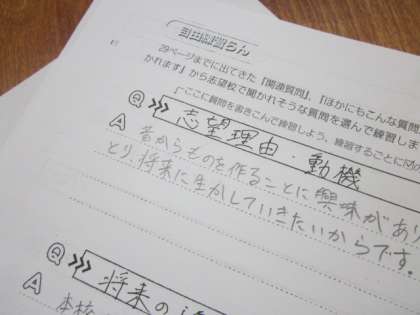 自由練習らん
29ページまでに出てきた『関連質問』、『ほかにもこんな質問
かれます』から志望校で聞かれそうな質問を選んで練習しま
ここに質問を書きこんで練習しよう。練習するごとに
Q 志望理由・動機
A 昔からものを作ることに興味があり
とり、将来に生かしていきたいからです
Q 将来の
A 本校